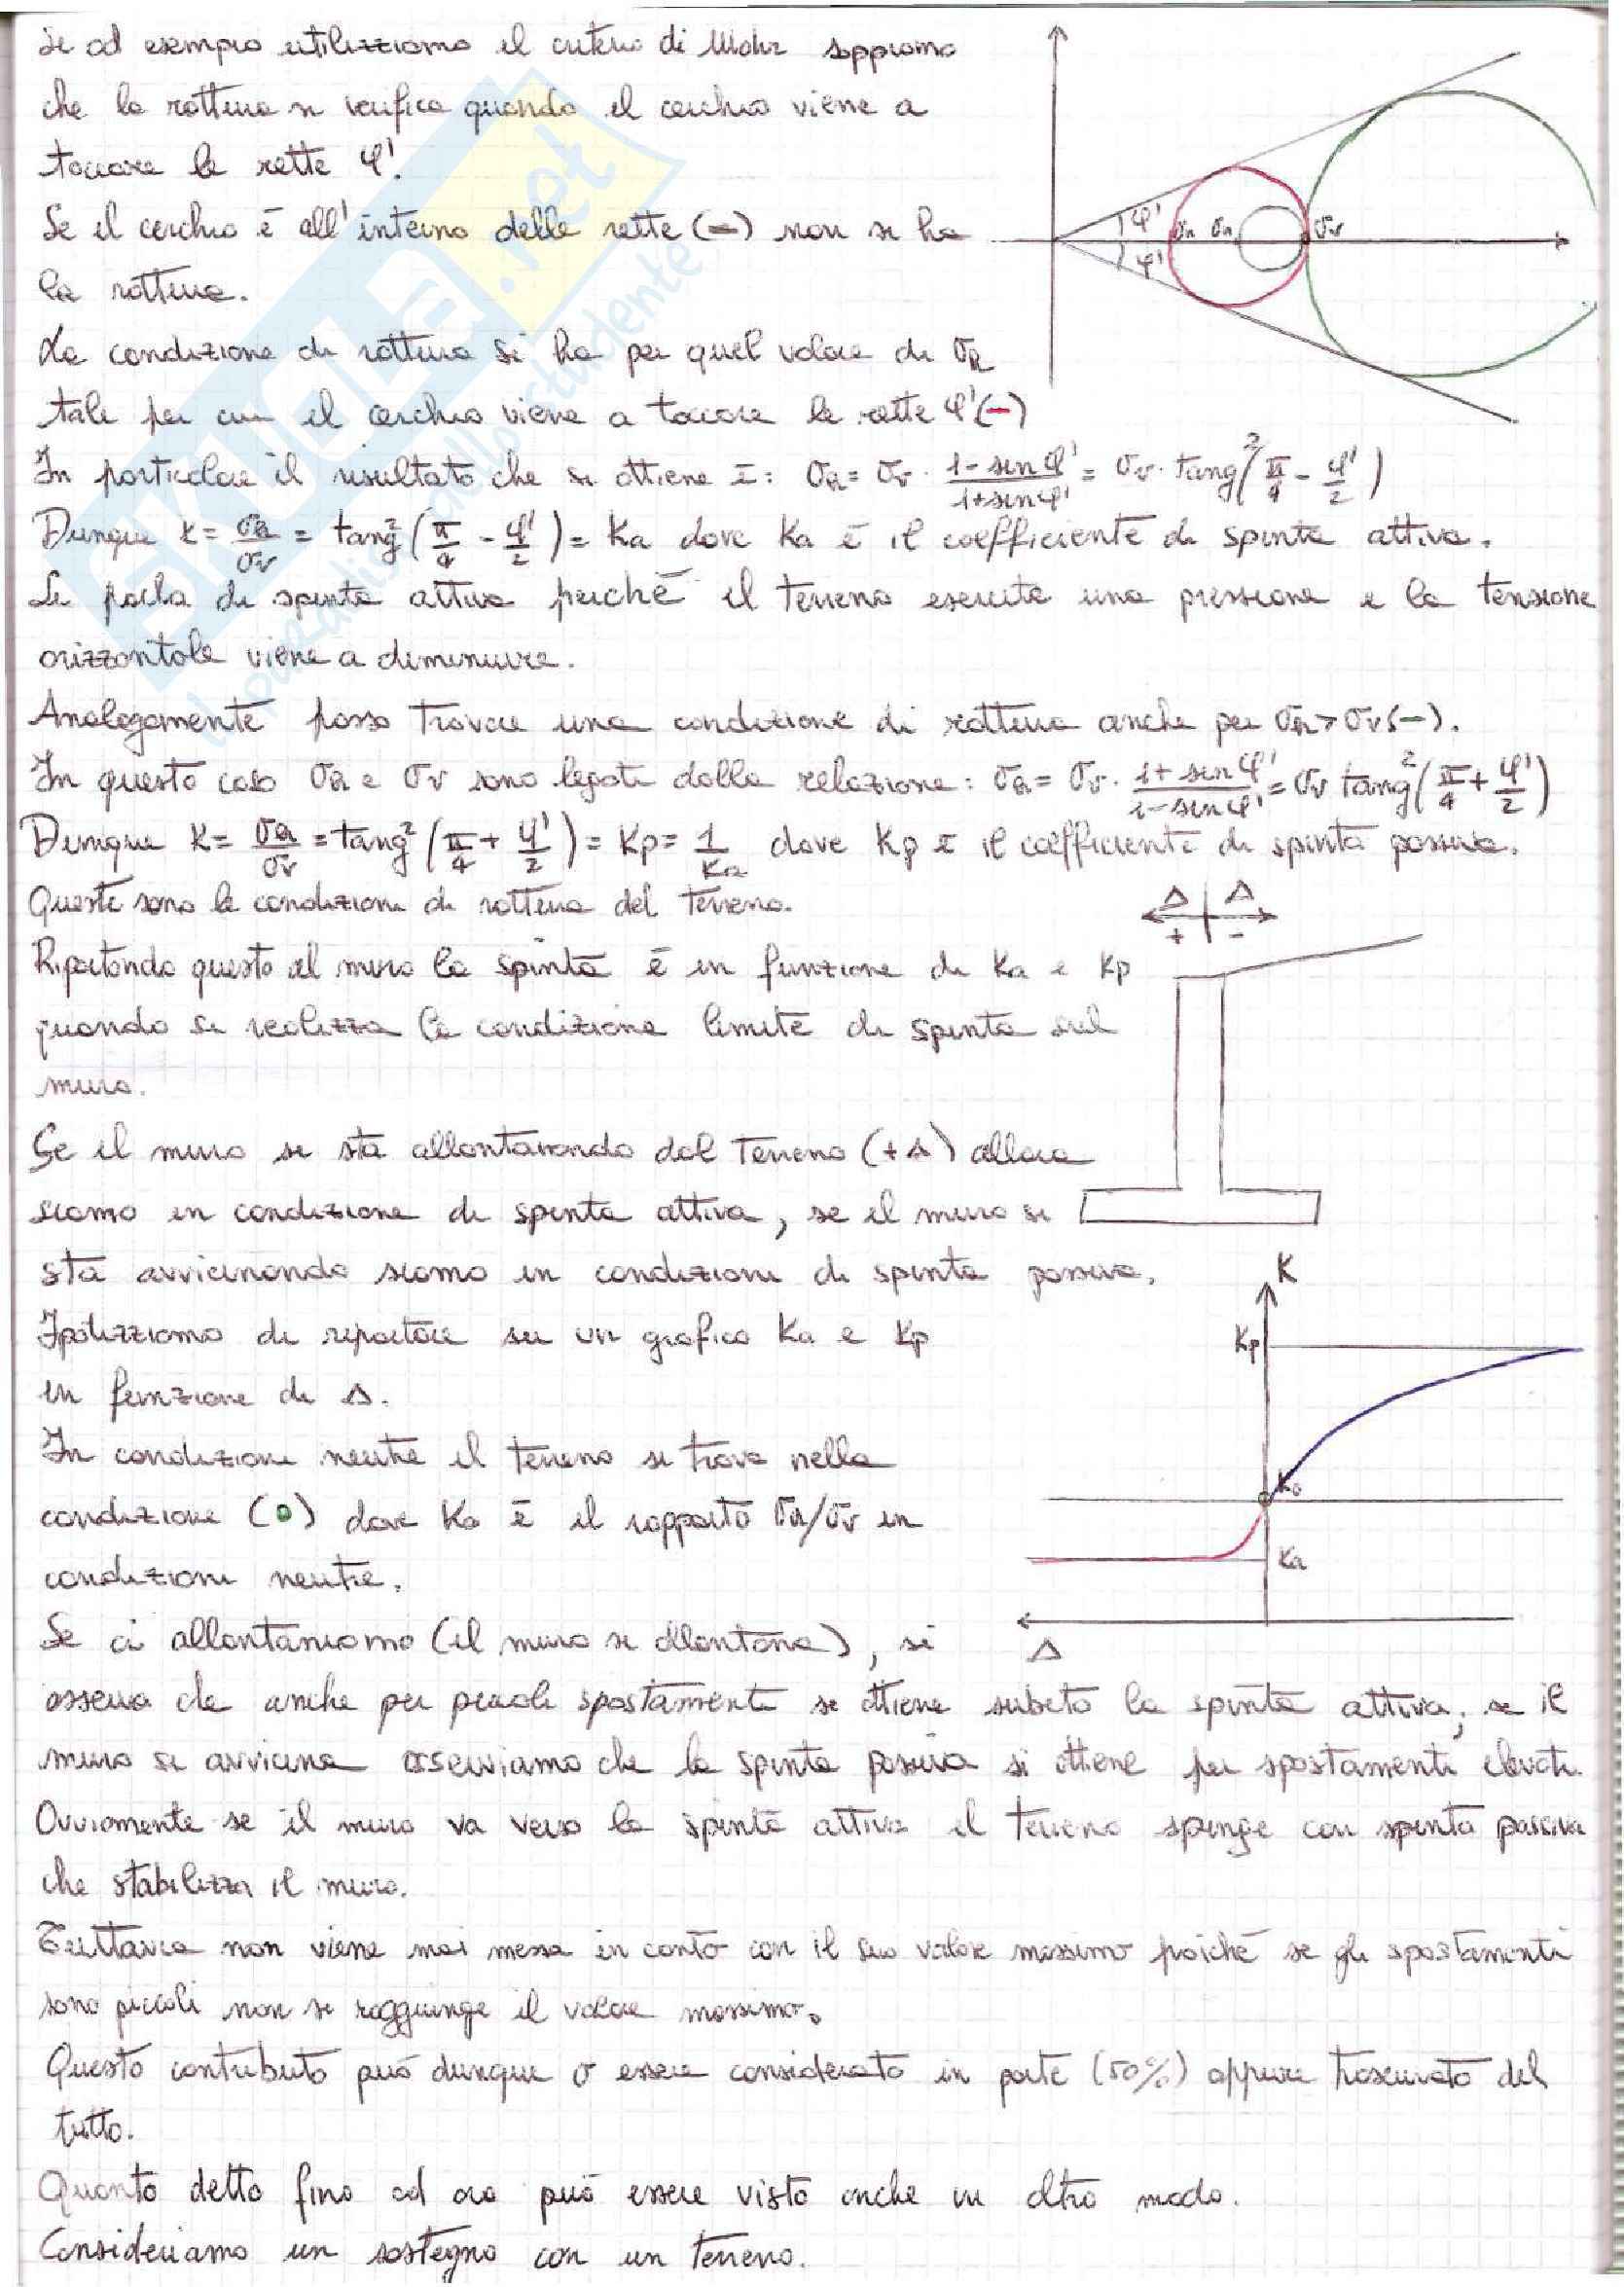 Se ad esempio utilizziamo il criterio di Mohr sappiamo
che la rottura si verifica quando il cerchio viene a
toccare le rette φ'.
Se il cerchio è all'interno delle rette (-) non si ha
la rottura.
La condizione di rottura si ha per quel valore di σh
tale per cui il cerchio viene a toccare le rette φ' (-)
In particolare il risultato che si ottiene è: σh = σv · (1 - sin φ')/(1 + sin φ') = σv · tang²(π/4 - φ'/2)
Dunque K = σh/σv = tang²(π/4 - φ'/2) = Ka dove Ka è il coefficiente di spinta attiva.
Si parla di spinta attiva perché il terreno esercita una pressione e la tensione
orizzontale viene a diminuire.
Analogamente posso trovare una condizione di rottura anche per σh > σv (-).
In questo caso σh e σv sono legati dalla relazione: σh = σv · (1 + sin φ')/(1 - sin φ') = σv tang²(π/4 + φ'/2)
Dunque K = σh/σv = tang²(π/4 + φ'/2) = Kp = 1/Ka dove Kp è il coefficiente di spinta passiva.
Queste sono le condizioni di rottura del terreno.
Riportando questo al muro la spinta è in funzione di Ka e Kp
quando si realizza la condizione limite di spinta sul
muro.
Se il muro si sta allontanando dal terreno (+Δ) allora
siamo in condizione di spinta attiva, se il muro si
sta avvicinando siamo in condizioni di spinta passiva.
Ipotizziamo di riportare su un grafico Ka e Kp
in funzione di Δ.
In condizioni neutre il terreno si trova nella
condizione (o) dove Ko è il rapporto σh/σv in
condizioni neutre.
Se ci allontaniamo (il muro si allontana), si
osserva che anche per piccoli spostamenti si ottiene subito la spinta attiva; se il
muro si avvicina osserviamo che la spinta passiva si ottiene per spostamenti elevati.
Ovviamente se il muro va verso la spinta attiva il terreno spinge con spinta passiva
che stabilizza il muro.
Tuttavia non viene mai messa in conto con il suo valore massimo poiché se gli spostamenti
sono piccoli non si raggiunge il valore massimo.
Questo contributo può dunque o essere considerato in parte (50%) oppure trascurato del
tutto.
Quanto detto fino ad ora può essere visto anche in altro modo.
Consideriamo un sostegno con un terreno.
φ'
φ'
σh σh
σv
Δ Δ
+ -
K
Kp
Ko
Ka
Δ
SKUOLA.net